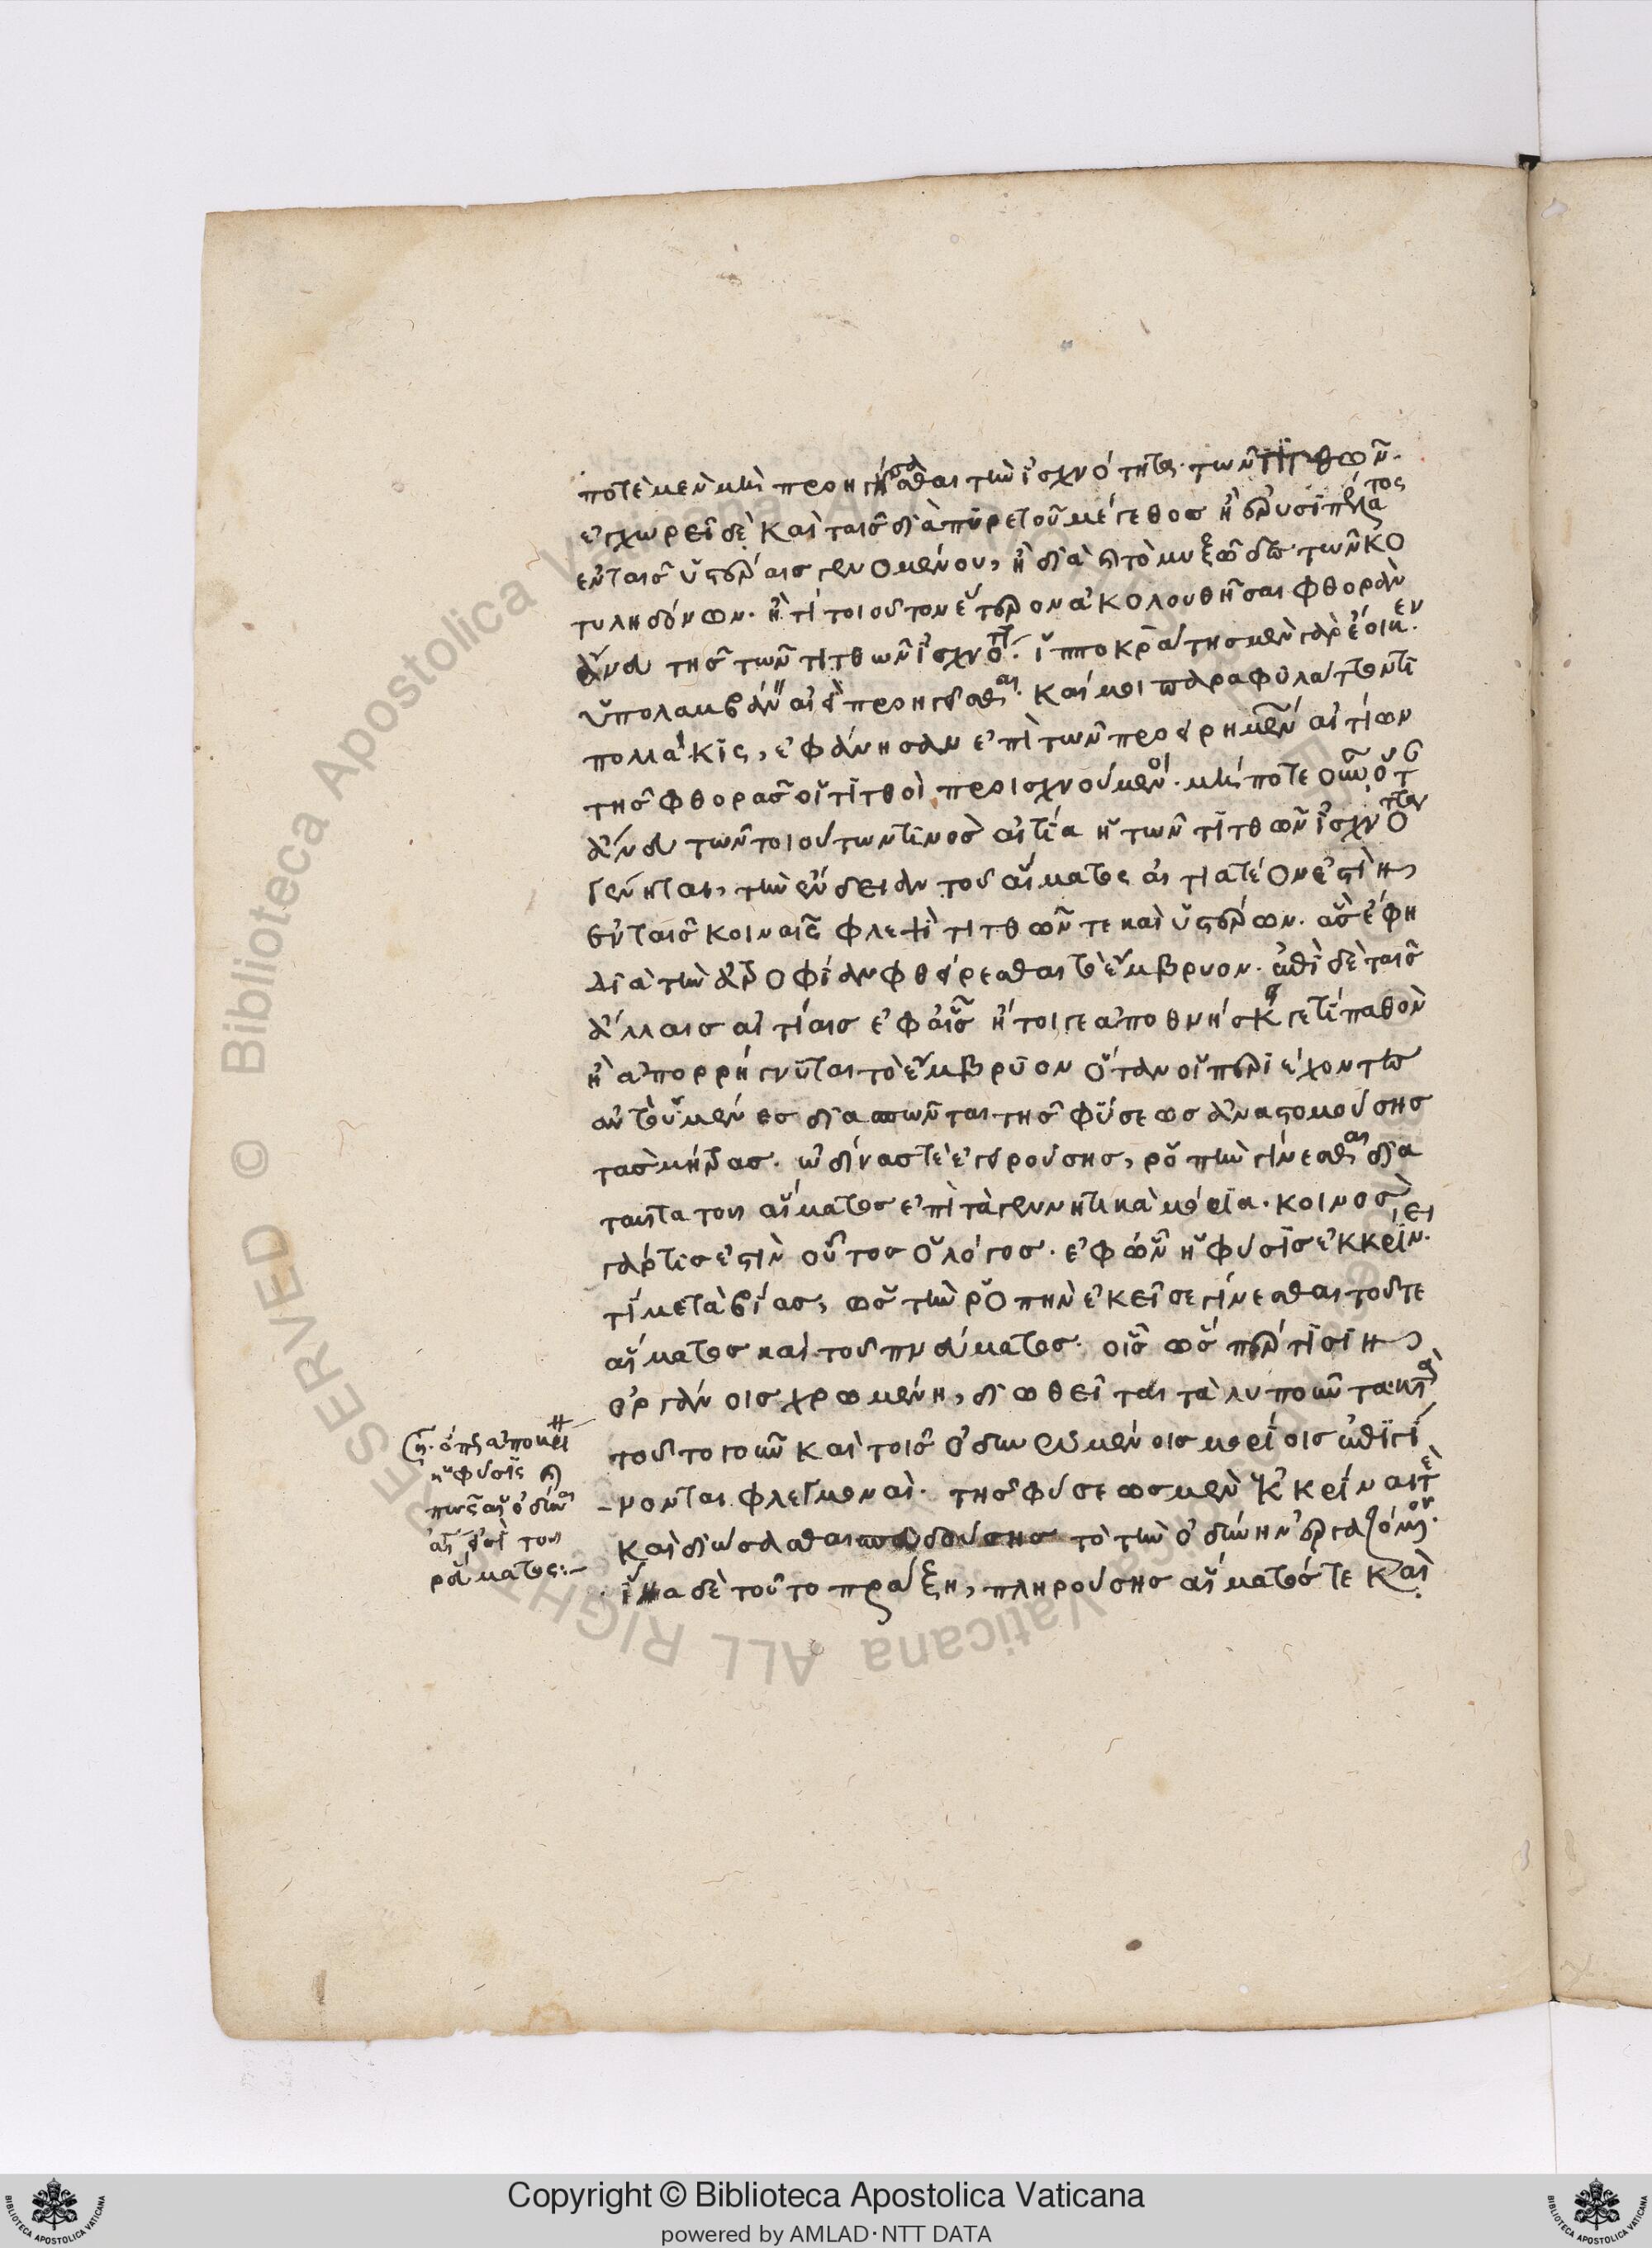 ποτε μὲν μὴ προηγήσασθαι τὴν ἰσχνότητα τῶν τιτθῶν.
ἐγχωρεῖ δὲ καὶ ταῖς διὰ πυρετοῦ μέγεθος ἢ ἐρυσιπέλατος
ἐν ταῖς ὑστέραις γενομένου, ἢ διὰ τὸ μυξῶδες τῶν κο
τυληδόνων. ἤ τι τοιοῦτον ἕτερον ἀκολουθῆσαι φθορὰν
ἄνευ τῆς τῶν τιτθῶν ἰσχνότητος. ἱπποκράτης μὲν γὰρ ἔοικεν
ὑπολαμβάνειν ἀεὶ προηγεῖσθαι. καί μοι παραφυλάττοντι
πολλάκις, ἐφάνησαν ἐπὶ τῶν προειρημένων αἰτίων
τῆς φθορᾶς οἱ τιτθοὶ προισχνούμενοι. μήποτε οὖν ὅτ
ἄνευ τῶν τοιούτων τινος αἰτία ἡ τῶν τιτθῶν ἰσχνότης
γένηται, τὴν ἔνδειαν τοῦ αἵματος αἰτιατέον ἐστὶ
ἐν ταῖς κοιναῖς φλεψὶ τιτθῶν τε καὶ ὑστέρων. ἃς ἔφη
διὰ τὴν ἀτροφίαν φθείρεσθαι τὸ ἔμβρυον. ἐπὶ δὲ ταῖς
ἄλλαις αἰτίαις ἐφ αἷς ἤτοι γε ἀποθνήσκει γέ τι παθὸν
ἢ ἀπορρήγνυται τὸ ἔμβρυον ὅταν οἱ περιέχοντες
αὐτὸ ὑμένες διασπῶνται τῆς φύσεως ἀναστομούσης
τὰς μήτρας. ὠδῖνάς τε ἐγειρούσης, ῥοπὴν γίνεσθαι διὰ
ταῦτα τοῦ αἵματος ἐπὶ τὰ γεννητικὰ μόρια. κοινὸς
γάρ τις ἐστὶν οὗτος ὁ λόγος. ἐφ ὧν ἡ φύσις ἐκκρίνει
τι μετὰ βίας, ὡς τὴν ῥοπὴν ἐκεῖσε γίνεσθαι τοῦ τε
αἵματος καὶ τοῦ πνεύματος. οἷς ὥσπερ τισὶν
ὀργάνοις χρωμένη, διωθεῖται τὰ λυποῦντα κατὰ
τοῦτο γοῦν καὶ τοῖς ὀδυνωμένοις μορίοις ἐπιγί
νονται φλεγμοναί. τῆς φύσεως μὲν ἐκκρῖναί τε
καὶ διώσασθαι σπευδούσης τὸ τὴν ὀδύνην ἐργαζόμενον.
ἵνα δὲ τοῦτο πράξη, πληρούσης αἵματός τε καὶ
ση. ὅπως ἀποκρίνει
ἡ φύσις
πῶς αἱ ὀδύναι
αἱ ἐπὶ τοῦ
ῥεύματος:–
Copyright © Biblioteca Apostolica Vaticana
powered by AMLAD·NTT DATA